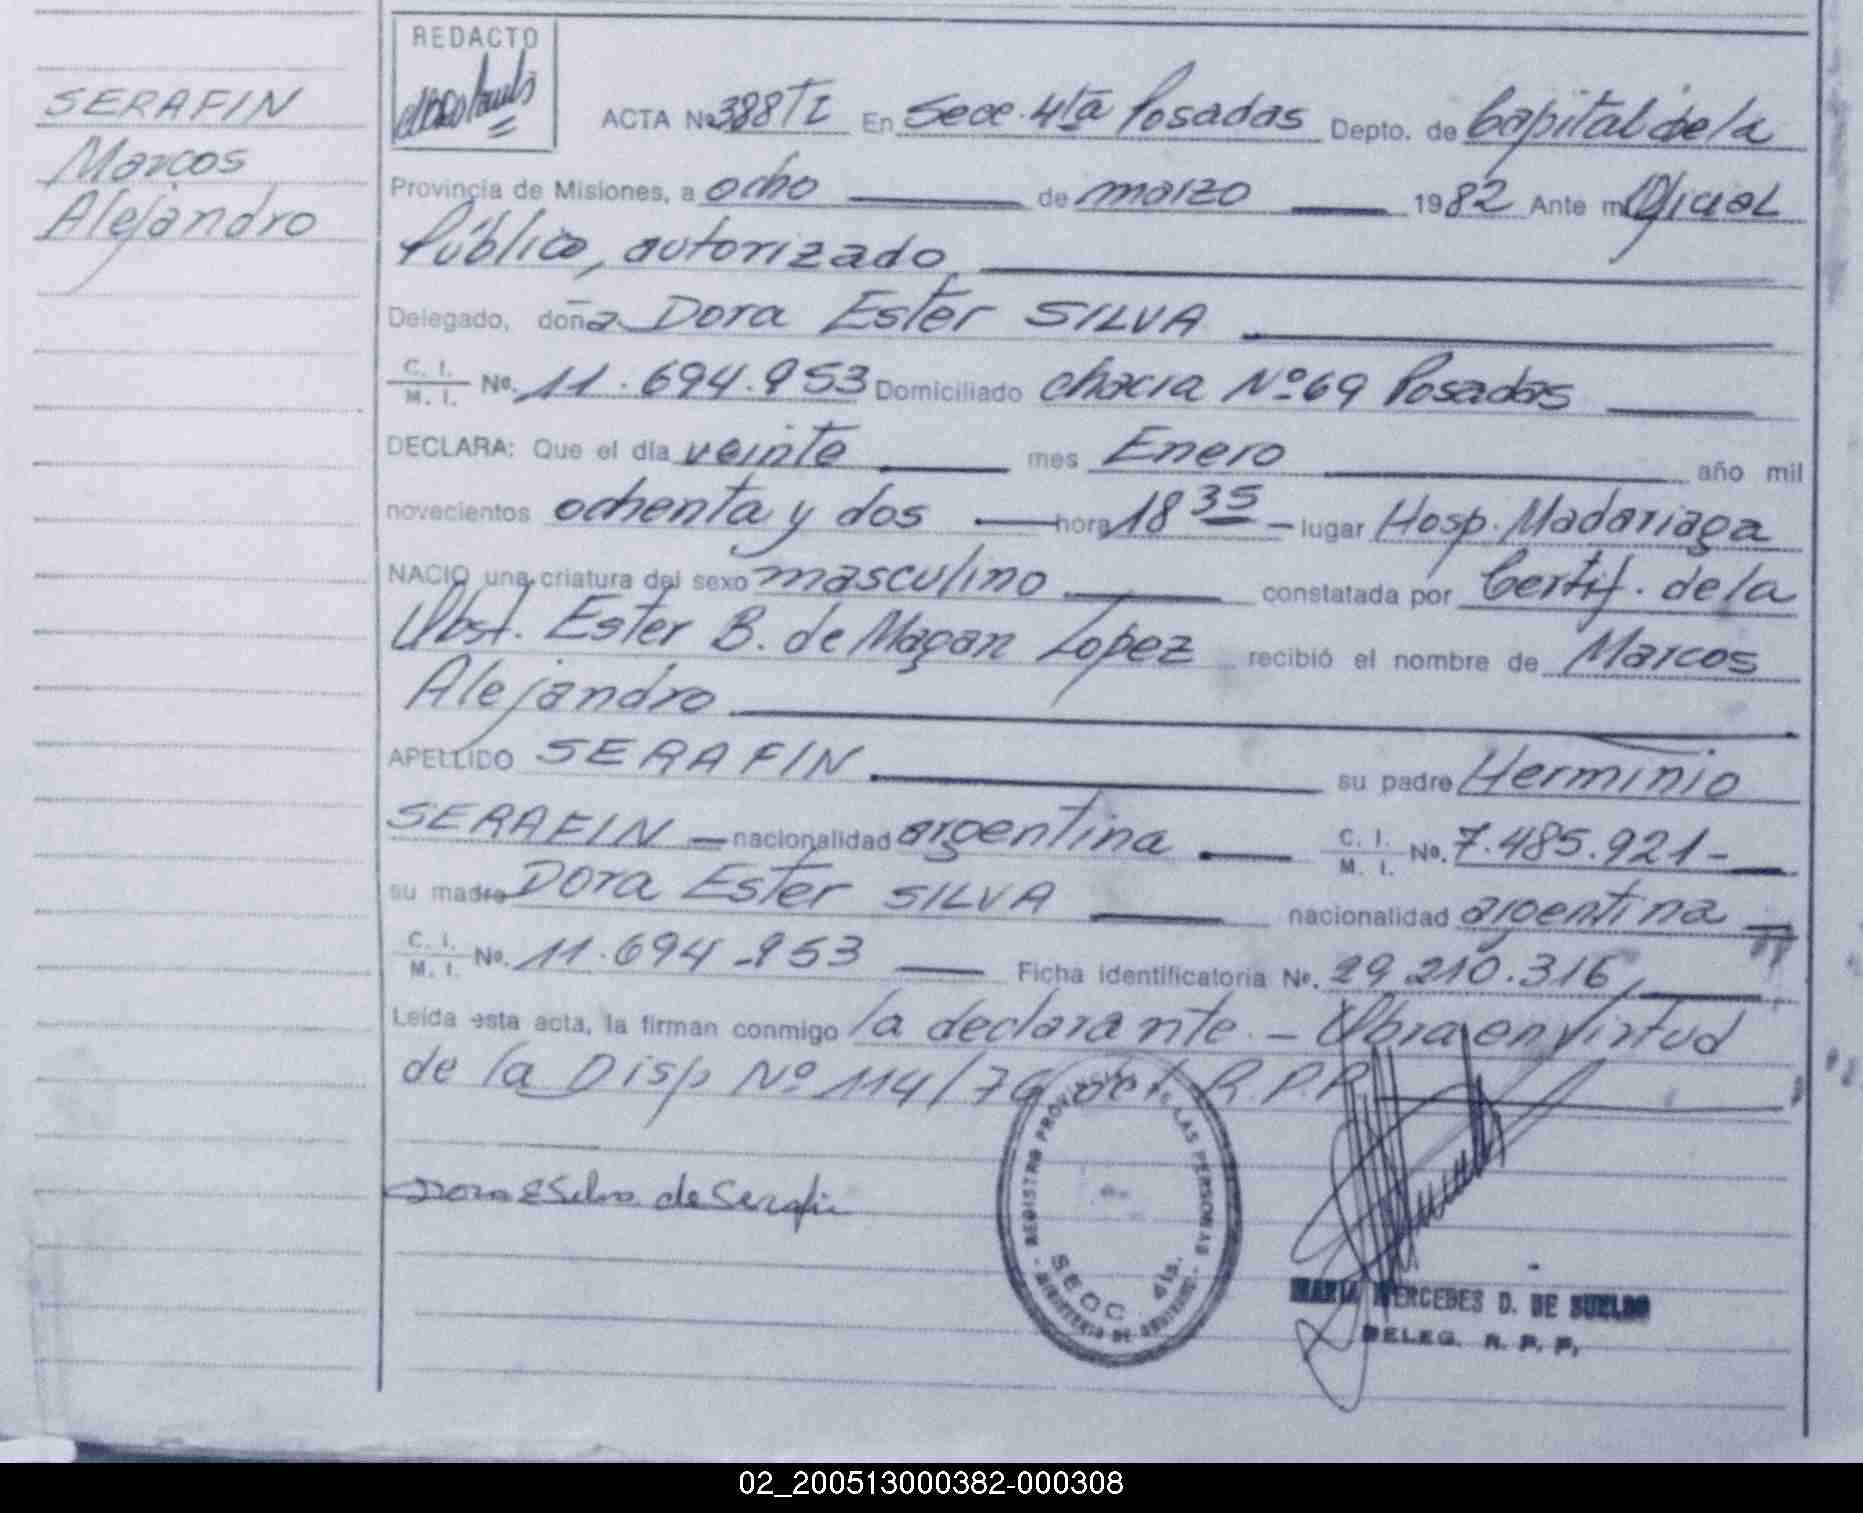 SERAFIN
Marcos
Alejandro
REDACTO
ACTA Nº 388 TI En Secc. 4ta Posadas Depto. de Capital de la
Provincia de Misiones, a ocho de marzo 1982 Ante mi Oficial
Público, autorizado
Delegado, doña Dora Ester SILVA
C. I. M. I. No. 11.694.953 Domiciliado chacra Nº 69 Posadas
DECLARA: Que el día veinte mes Enero año mil
novecientos ochenta y dos hora 18 35 lugar Hosp. Madariaga
NACIO una criatura del sexo masculino constatada por Certif. de la
Obst. Ester B. de Magan Lopez recibió el nombre de Marcos
Alejandro
APELLIDO SERAFIN su padre Herminio
SERAFIN nacionalidad argentina C. I. M. I. No. 7.485.921
su madre Dora Ester SILVA nacionalidad argentina
C. I. M. I. No. 11.694.953 Ficha identificatoria No. 29.210.316
Leída esta acta, la firman conmigo la declarante. - Obra en virtud
de la Disp Nº 114/76 del R.P.P.
Dora E Silva de Serafin
REGISTRO PROVINCIAL DE LAS PERSONAS
SECC. 4ta.
MINISTERIO DE GOBIERNO
MARIA MERCEDES D. DE SUELDO
DELEG. R. P. P.
02_200513000382-000308